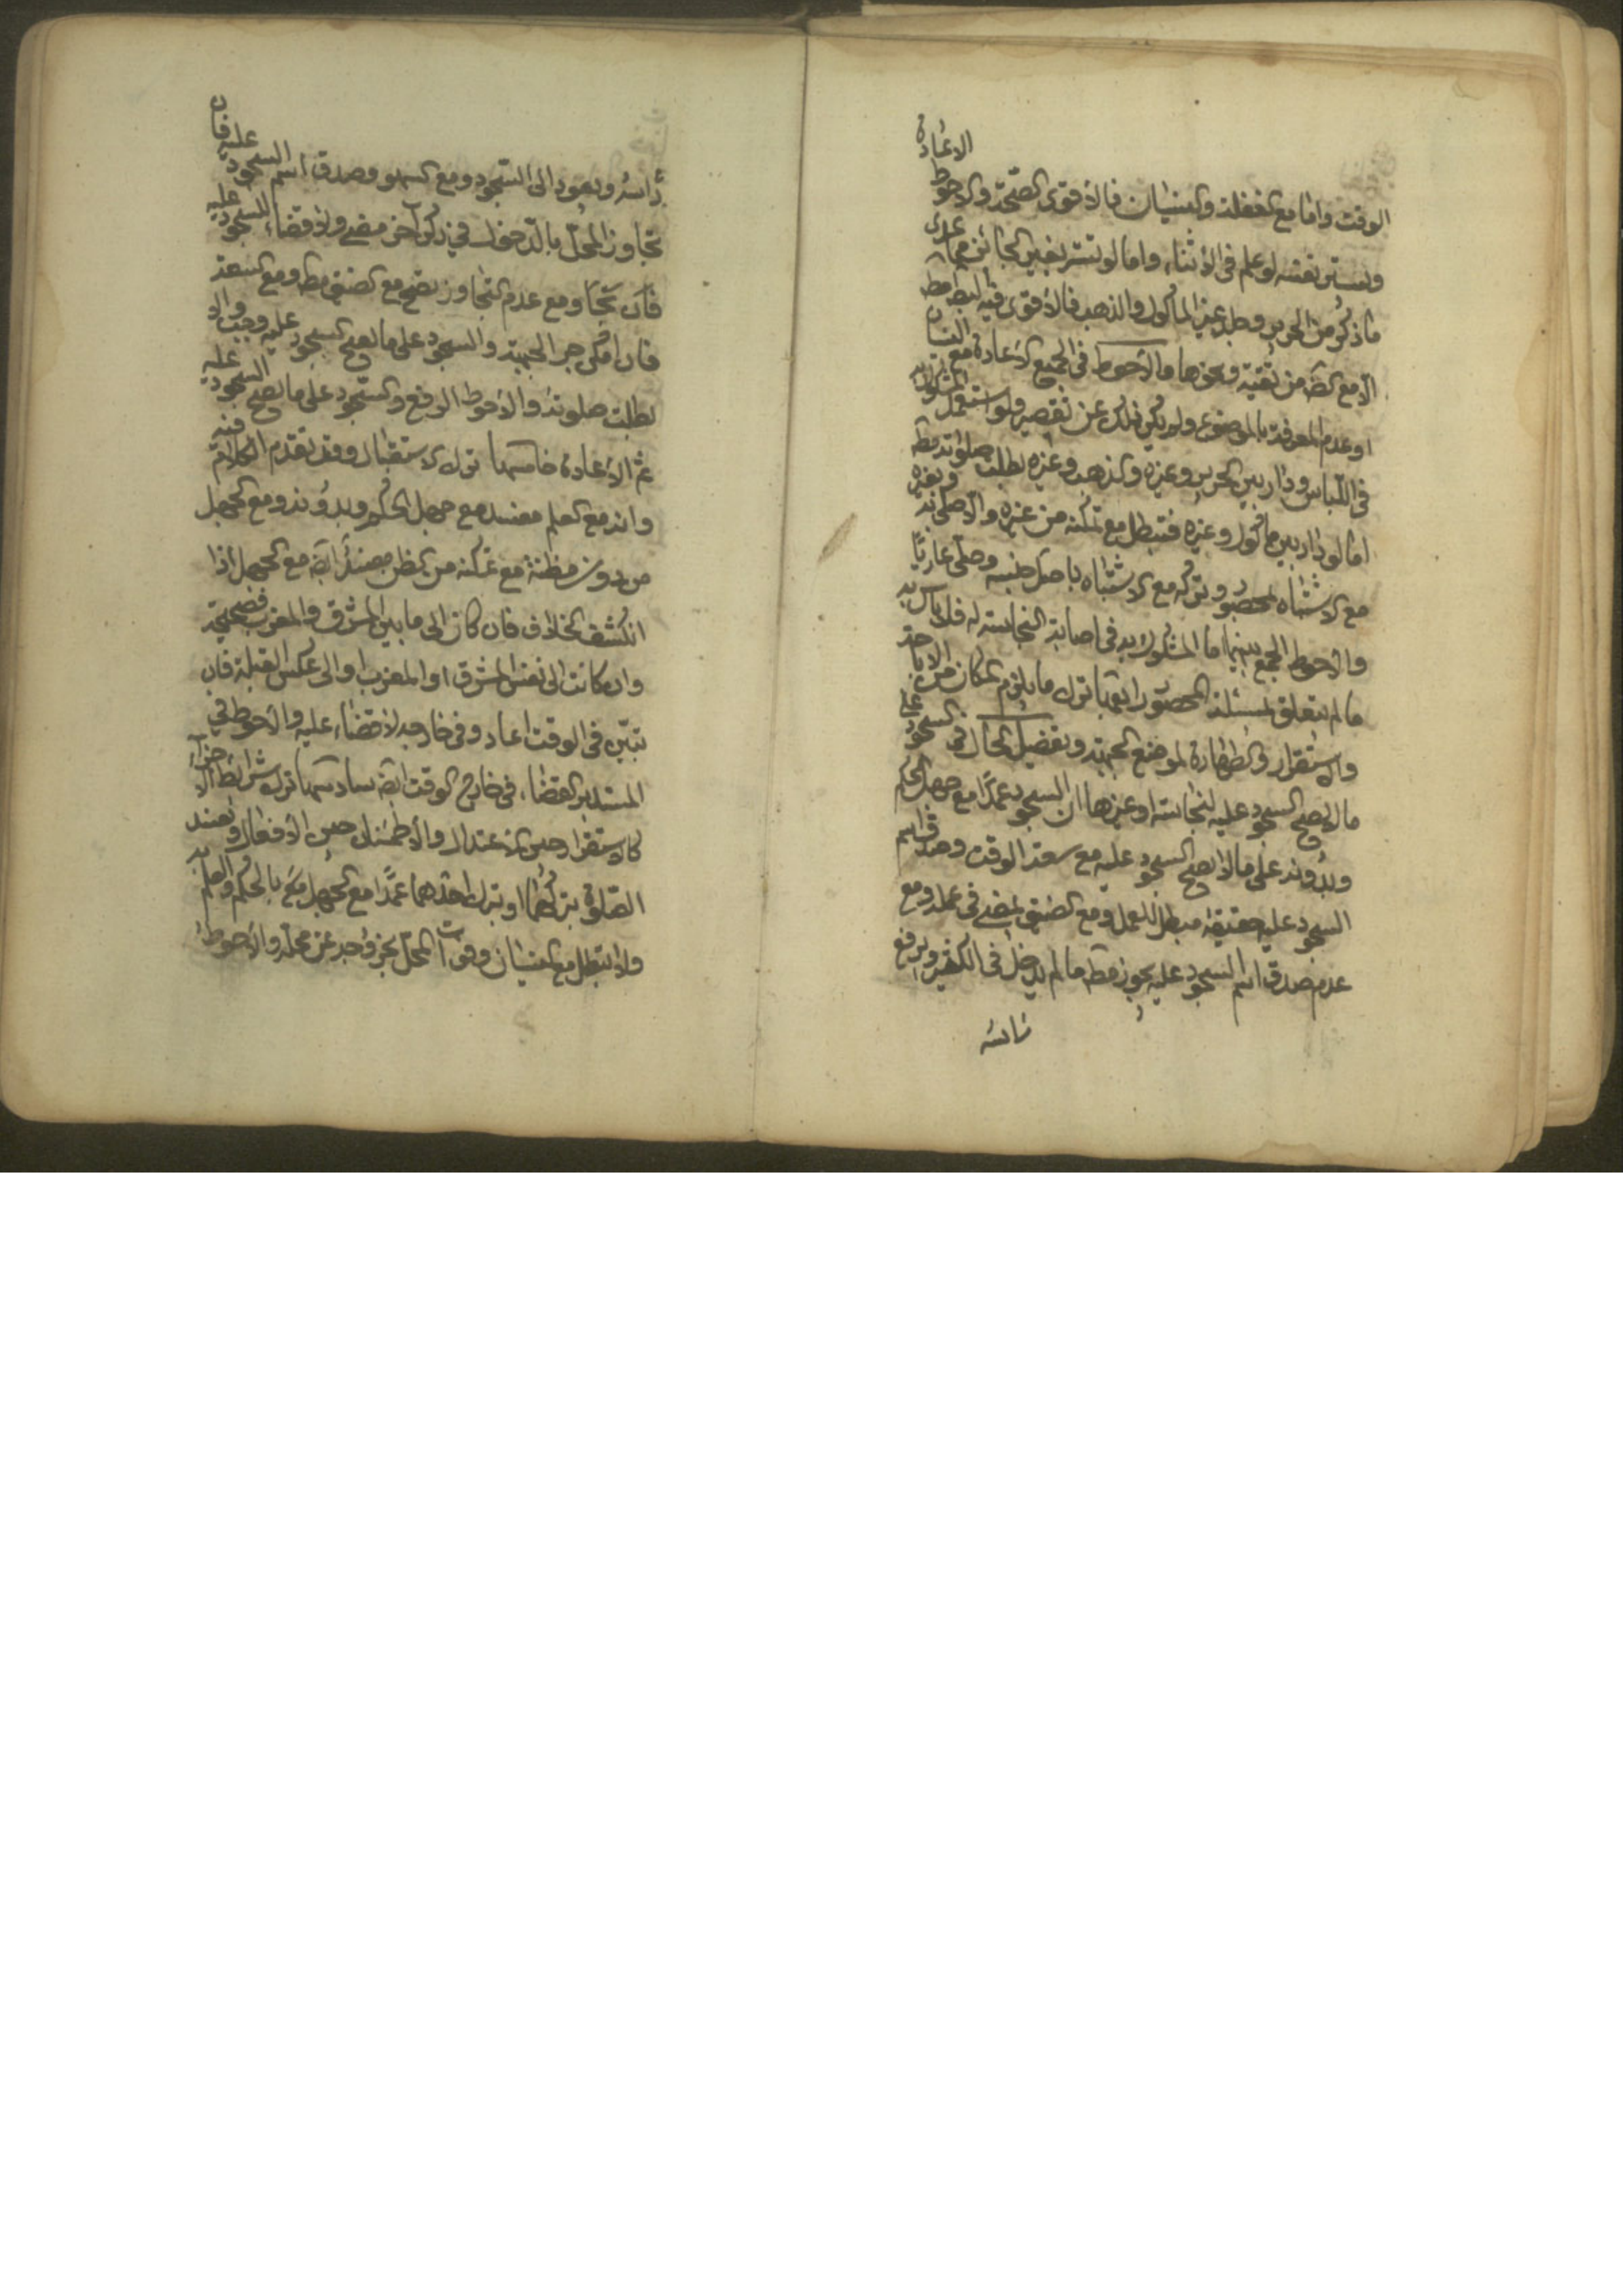 الوقت واما مع الغفلة والنسيان فالاقوى الصّحّة والاحوط الاعادة
ويستر نفسه لو علم فى الاثناء واما لو تستر بغير الجائز مما عدى
ما ذكر من الحرير وجلد غير المأكول والذهب فالاقوى فيه البط مط
الا مع الضـ من تقية ونحوها والاحوط فى الجميع الاعادة مع النسيان
او عدم المعرفة بالموضوع ولو يكن ذلك عن تقصير ولو استعمل المشكوك به
فى اللباس ودار بين الحرير وغيره والذهب وغيره بطلت صلوته مط
اما لو دار بين مأكول وغيره فتبطل مع تمكنه من غيره والا صلى به وبغيره
مع الاشتباه المحصور وتركه مع الاشتباه باصل جنسه وصلّى عاريًا
والاحوط الجمع بينهما اما المشكوك به فى اصابة النجاسة له فلا بأس به
ما لم يتعلق بمسئلة المحصور رابعها ترك ما يلزم المكان من الاباحة
والاستقرار والطهارة لموضع الجبهة وتفصيل الحال فى السجود على
ما لا يصح السجود عليه لنجاسته او غيرها ان السجود عمدًا مع جهل الحكم
وبدونه على ما لا يصح السجود عليه مع سعة الوقت وصدق اسم
السجود عليه حقيقة مبطل للعمل ومع الضيق يمضى فى عمله ومع
عدم صدق اسم السجود عليه يجوز مط ما لم يدخل فى الكثير ويرفع
راسه
رأسه ويعود الى السّجود ومع السهو وصدق اسم السجود عليه فان
تجاوز المحلّ بالدّخول في ركن آخر مضى ولا قضاء للسجود عليه
فان تجا ومع عدم التجاوز يصح مع الضيق مط ومع السعة
فان امكن جر الجبهة والسجود على ما يصح السجود عليه وجب والا
بطلت صلوته والاحوط الرفع والسّجود على ما يصح السجود عليه
ثم الاعادة خامسها ترك الاستقبال وقد تقدم الكلام فيه
وانه مع العلم مفسد مع جهل الحكم وبدونه ومع الجهل
من دون مظنة مع تمكنه من الظن مفسد ايضـ مع الجهل اذا
انكشف الخلاف فان كان الى ما بين المشرق والمغرب فصحيحة
وان كانت الى نفس المشرق او المغرب او الى عكس القبلة فان
تبيّن فى الوقت اعاد وفى خارجه لا قضاء عليه والاحوط في
المستدبر القضاء فى خارج الوقت ايضـ سادسها ترك شرائط الاجزاء
كالاستقرار حين الاعتدال والاطمئنان حين الافعال وتفسد
الصّلوة بتركهما او بترك احدهما عمدًا مع الجهل بالحكم والعلم به
ولا تبطل مع النسيان وفوات المحلّ بخروجه عن محله والاحوط